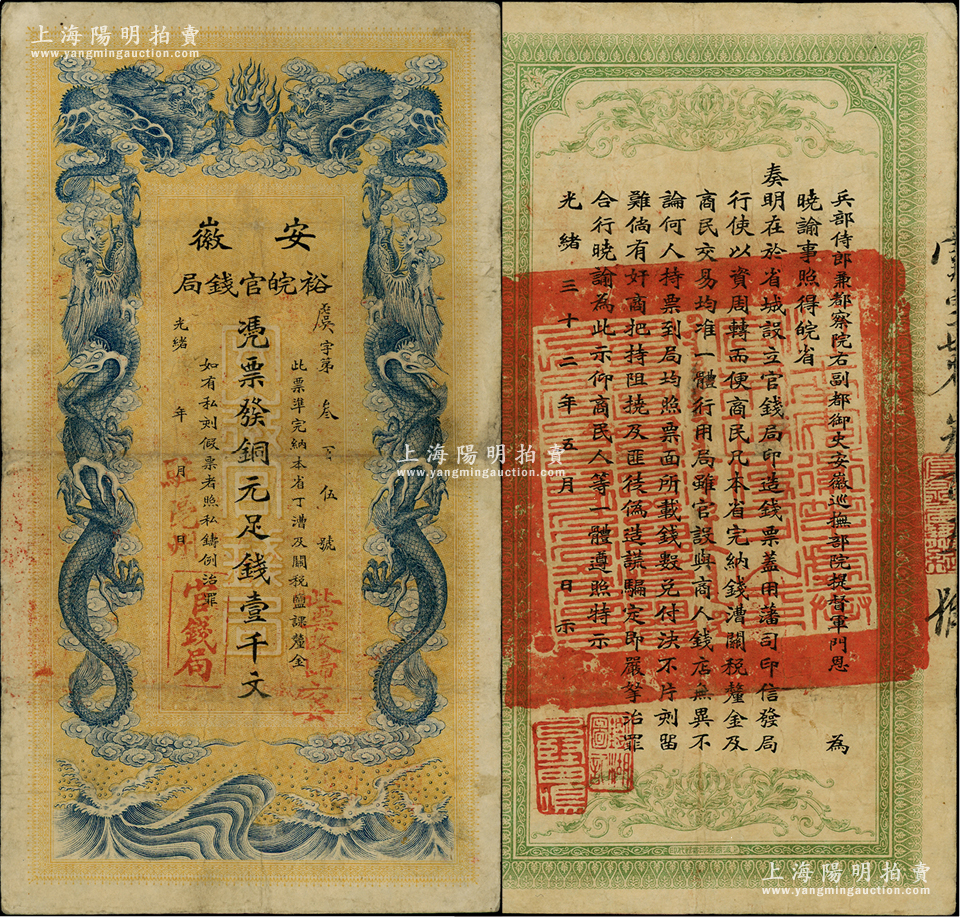 上海陽明拍賣
www.yangmingauction.com
安徽
裕皖官錢局
虞字第叁 伍號
此票準完納本省丁漕及關税鹽課釐金
憑票發銅元足錢壹千文
如有私刻假票者照私鑄例治罪
光緒 年 月 日
官錢局
上海陽明拍賣
www.yangmingauction.com
兵部侍郎兼都察院右副都御史安徽巡撫部院提督軍門恩 為
曉諭事照得皖省
奏明在於省城設立官錢局印造錢票蓋用藩司印信發局
行使以資周轉而便商民凡本省完納錢漕關税釐金及
商民交易均准一體行用局雖官設與商人錢店無異不
論何人持票到局均照票面所載錢數兑付決不片刻留
難倘有奸商把持阻撓及匪徒偽造謊騙定即嚴拏治罪
合行曉諭為此示仰商民人等一體遵照特示
光緒三十二年五月 日示
上海陽明拍賣
www.yangmingauction.com
上海陽明拍賣
www.yangmingauction.com